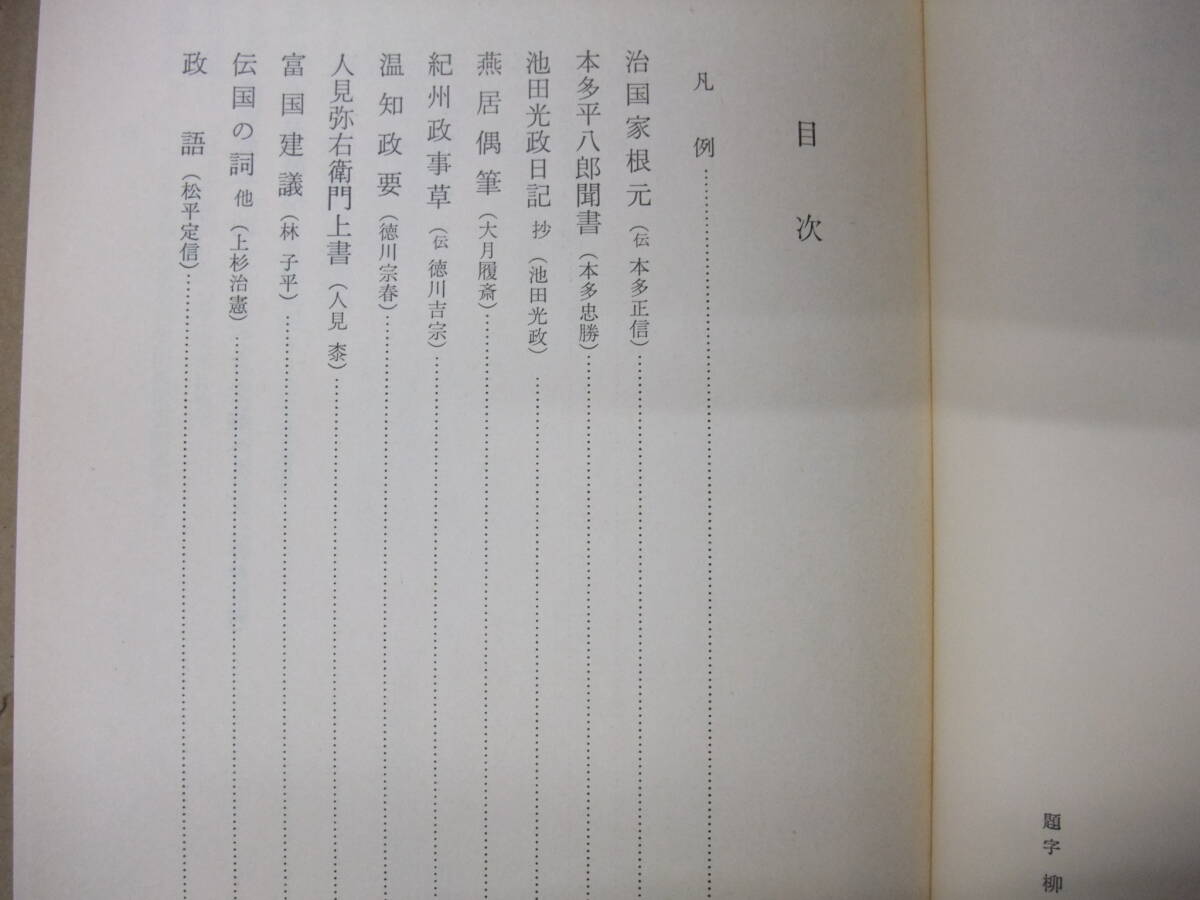 題字 柳
目次
凡例
治国家根元（伝 本多正信）
本多平八郎聞書（本多忠勝）
池田光政日記 抄（池田光政）
燕居偶筆（大月履斎）
紀州政事草（伝 徳川吉宗）
温知政要（徳川宗春）
人見弥右衛門上書（人見 桼）
富国建議（林 子平）
伝国の詞 他（上杉治憲）
政語（松平定信）